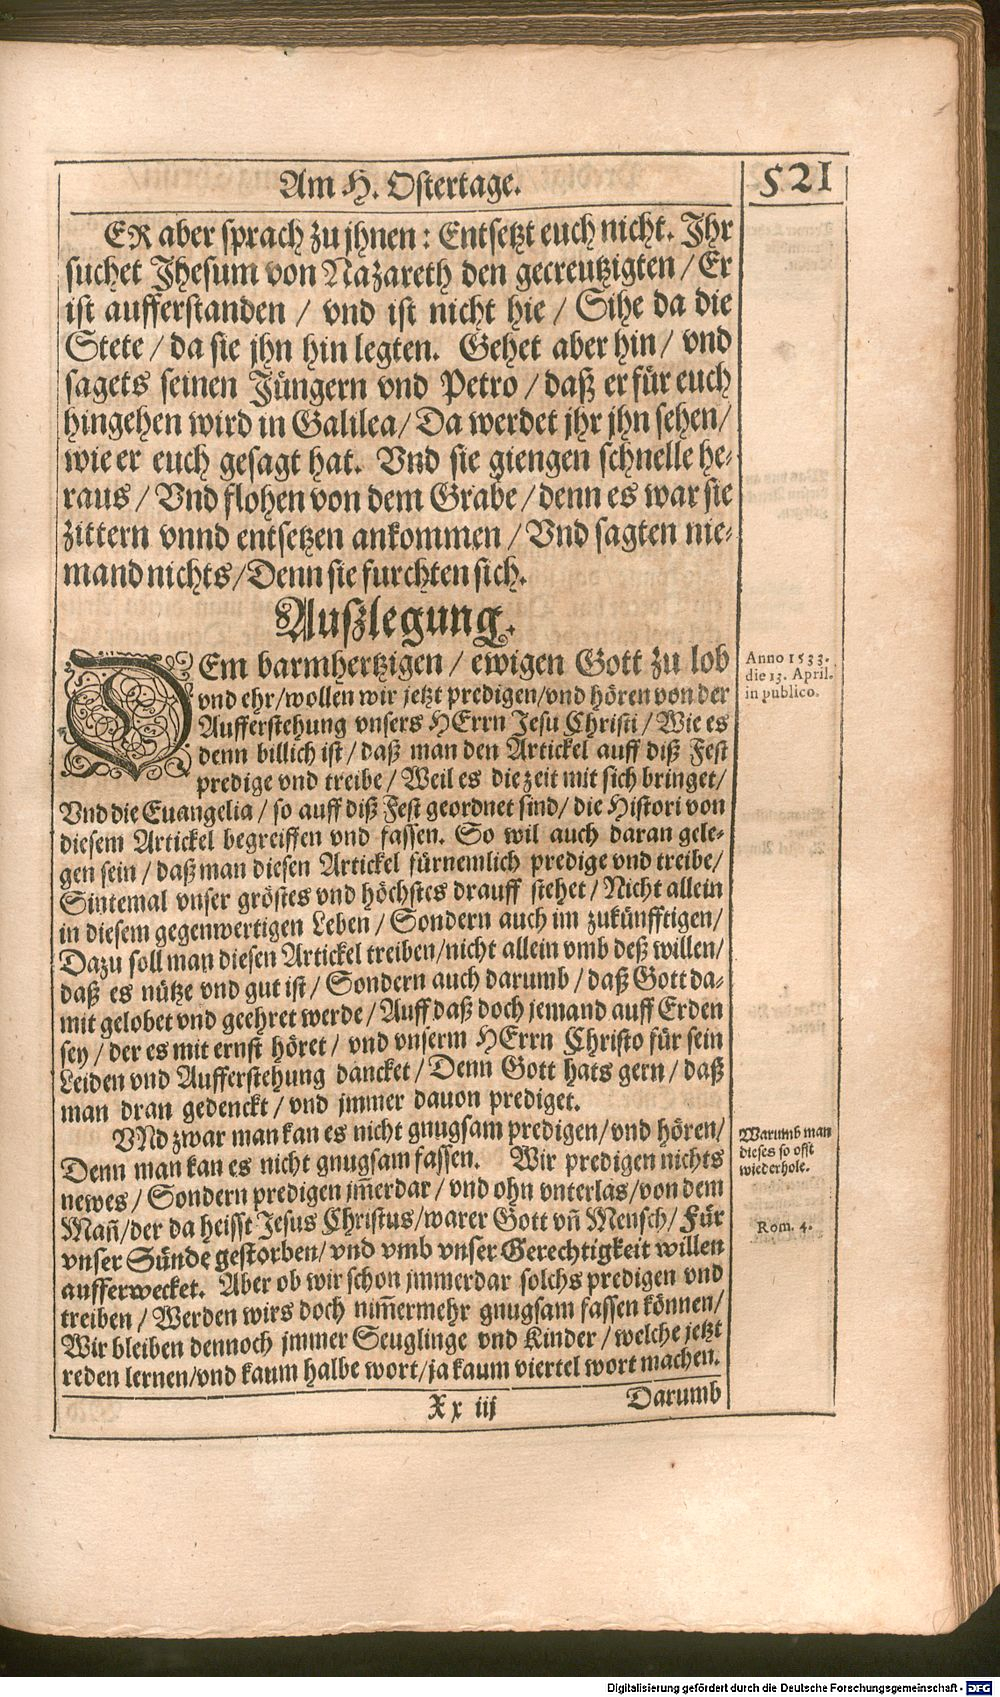 Am H. Ostertage.
521
ER aber sprach zu jhnen: Entsetzt euch nicht. Jhr
suchet Jhesum von Nazareth den gecreutzigten / Er
ist aufferstanden / vnd ist nicht hie / Sihe da die
Stete / da sie jhn hin legten. Gehet aber hin / vnd
sagets seinen Jüngern vnd Petro / daß er für euch
hingehen wird in Galilea / Da werdet jhr jhn sehen /
wie er euch gesagt hat. Vnd sie giengen schnelle he-
raus / Vnd flohen von dem Grabe / denn es war sie
zittern vnnd entsetzen ankommen / Vnd sagten nie-
mand nichts / Denn sie furchten sich.
Auszlegung.
DEm barmhertzigen / ewigen Gott zu lob
vnd ehr / wollen wir jetzt predigen / vnd hören von der
Aufferstehung vnsers HErrn Jesu Christi / Wie es
denn billich ist / daß man den Artickel auff diß Fest
predige vnd treibe / Weil es die zeit mit sich bringet /
Vnd die Euangelia / so auff diß Fest geordnet sind / die Histori von
diesem Artickel begreiffen vnd fassen. So wil auch daran gele-
gen sein / daß man diesen Artickel fürnemlich predige vnd treibe /
Sintemal vnser gröstes vnd höchstes drauff stehet / Nicht allein
in diesem gegenwertigen Leben / Sondern auch im zukünfftigen /
Dazu soll man diesen Artickel treiben / nicht allein vmb deß willen /
daß es nütze vnd gut ist / Sondern auch darumb / daß Gott da-
mit gelobet vnd geehret werde / Auff daß doch jemand auff Erden
sey / der es mit ernst höret / vnd vnserm HErrn Christo für sein
Leiden vnd Aufferstehung dancket / Denn Gott hats gern / daß
man dran gedenckt / vnd jmmer dauon prediget.
VNd zwar man kan es nicht gnugsam predigen / vnd hören /
Denn man kan es nicht gnugsam fassen. Wir predigen nichts
newes / Sondern predigen jm̃erdar / vnd ohn vnterlas / von dem
Mañ / der da heisst Jesus Christus / warer Gott vñ Mensch / Für
vnser Sünde gestorben / vnd vmb vnser Gerechtigkeit willen
aufferwecket. Aber ob wir schon jmmerdar solchs predigen vnd
treiben / Werden wirs doch nim̃ermehr gnugsam fassen können /
Wir bleiben dennoch jmmer Seuglinge vnd Kinder / welche jetzt
reden lernen / vnd kaum halbe wort / ja kaum viertel wort machen.
Xx iij
Darumb
Anno 1533.
die 13. April.
in publico.
Warumb man
dieses so offt
wiederhole.
Rom. 4.
Digitalisierung gefördert durch die Deutsche Forschungsgemeinschaft - DFG